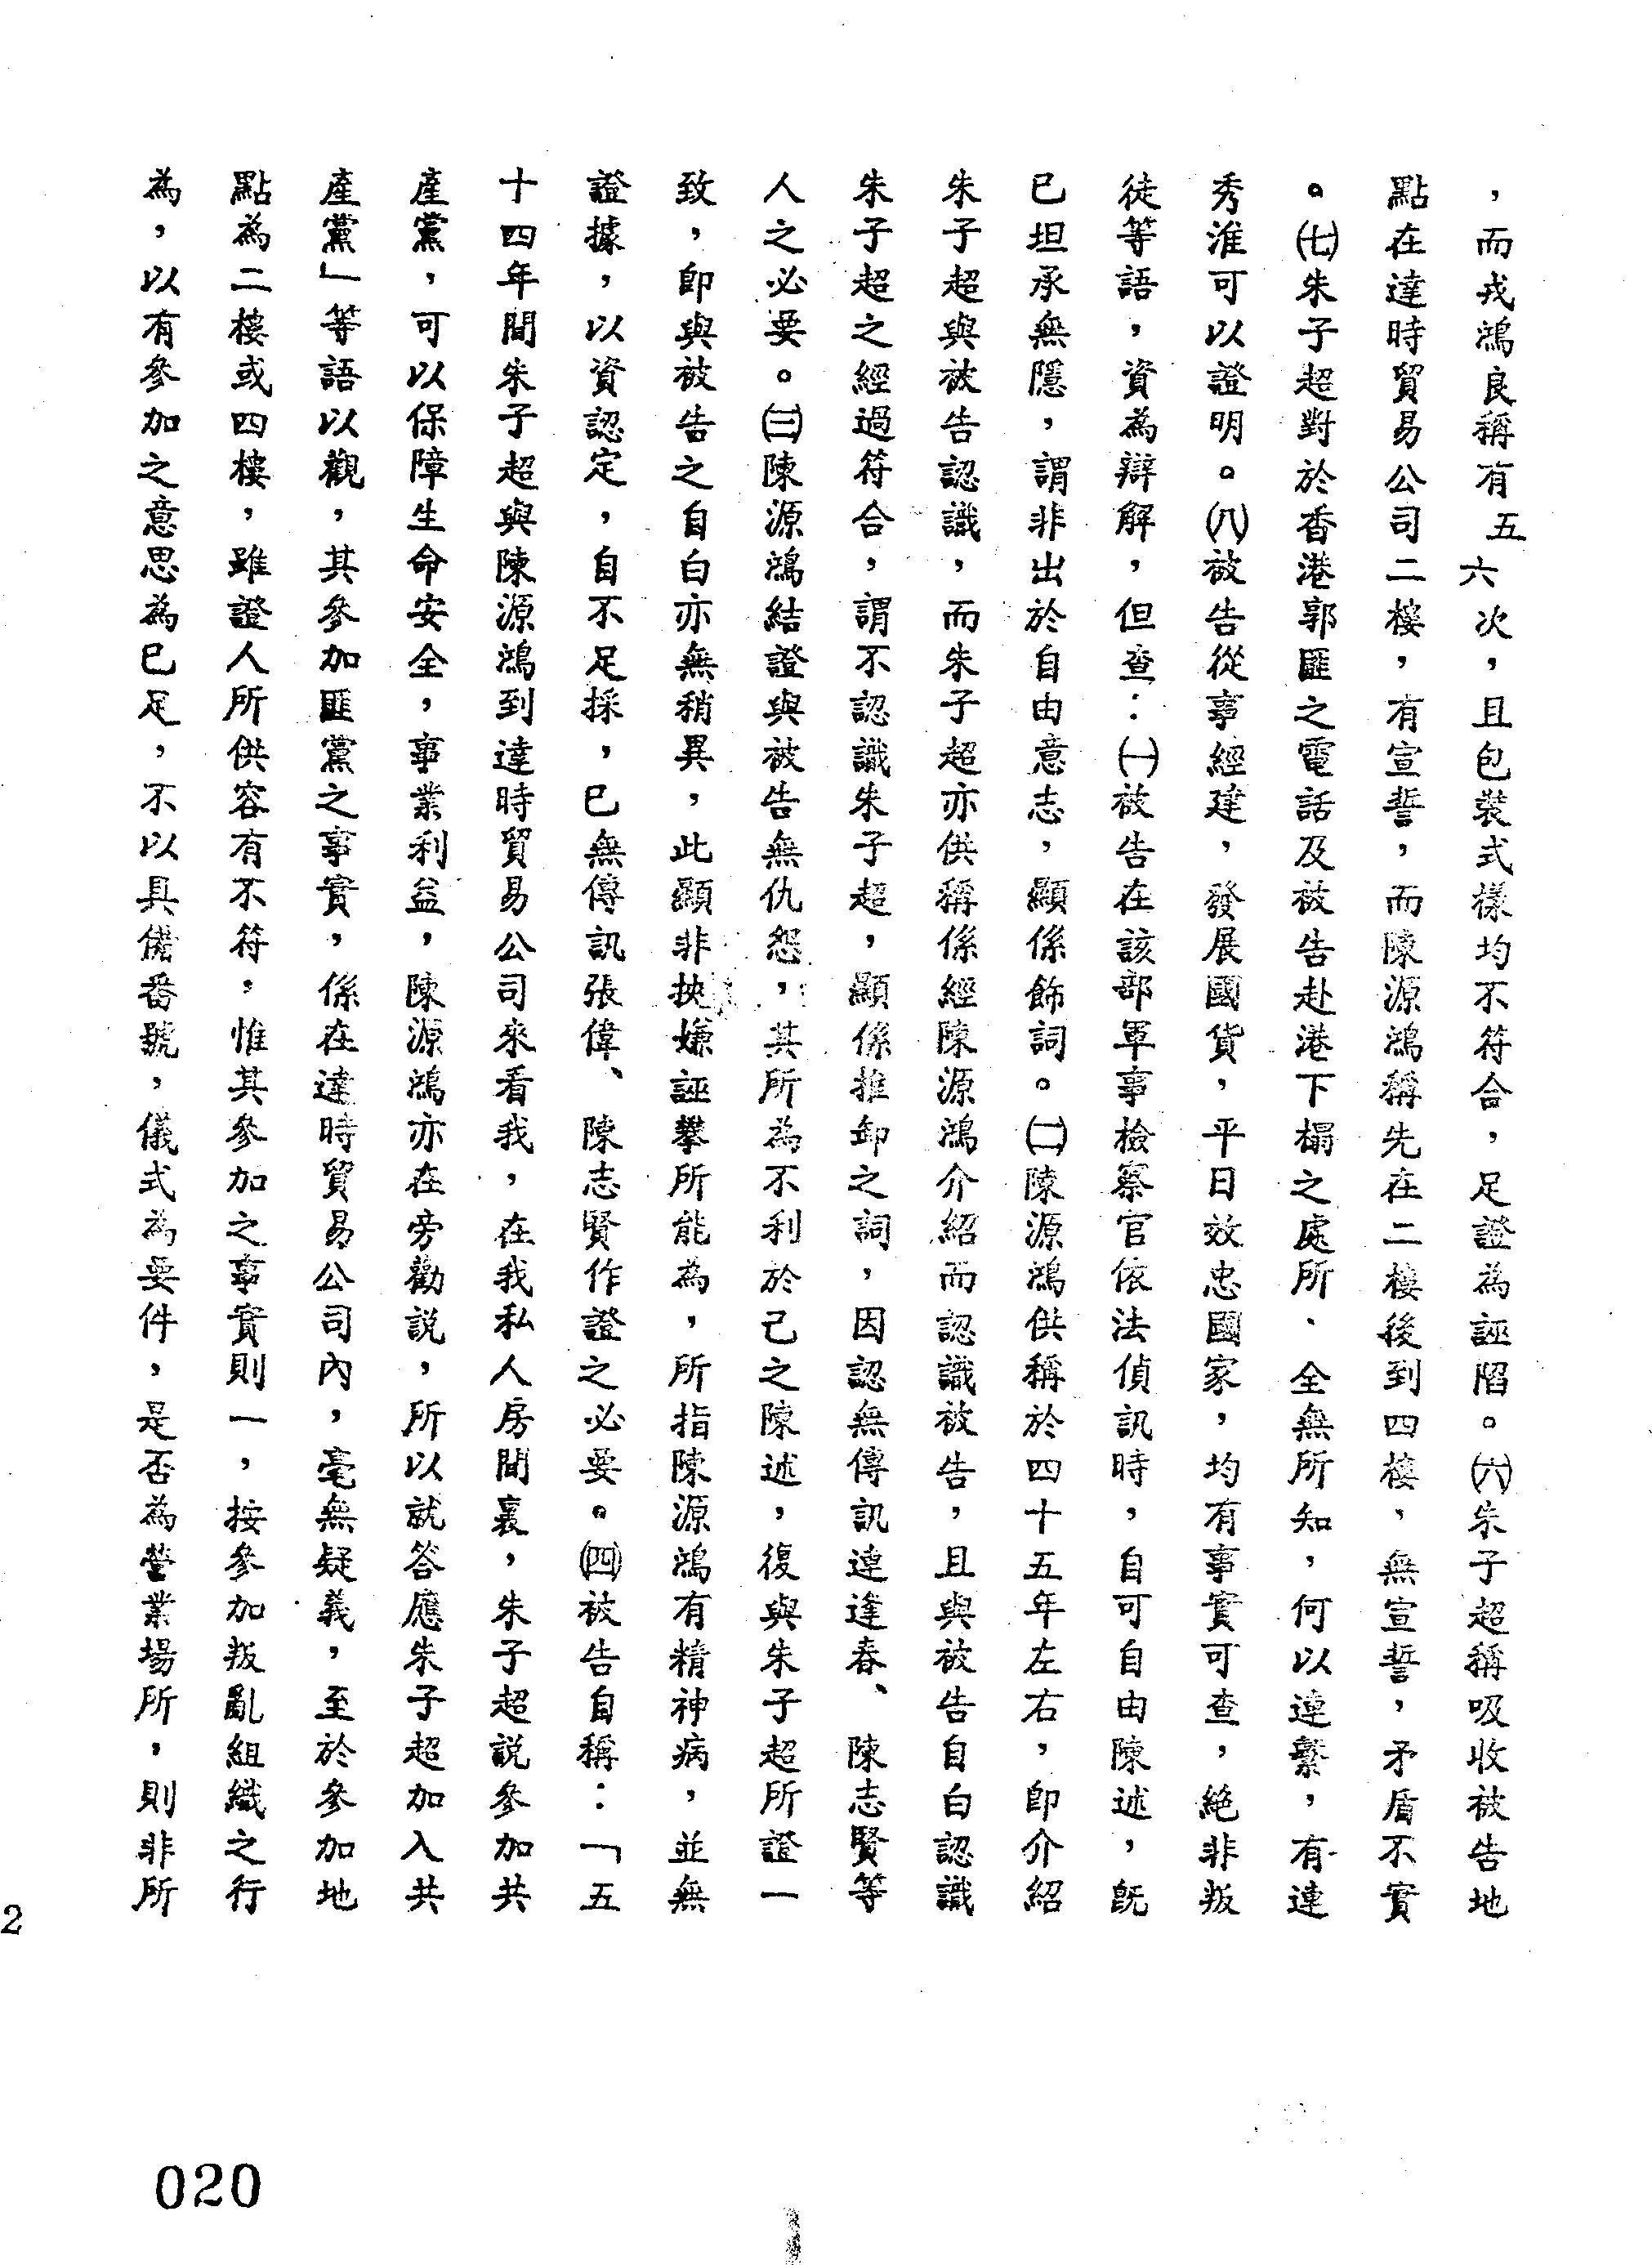 ，而戎鴻良稱有五六次，且包裝式樣均不符合，足證為誣陷。㈥朱子超稱吸收被告地
點在達時貿易公司二樓，有宣誓，而陳源鴻稱先在二樓後到四樓，無宣誓，矛盾不實
。㈦朱子超對於香港郭匪之電話及被告赴港下榻之處所、全無所知，何以連繫，有連
秀淮可以證明。㈧被告從事經建，發展國貨，平日效忠國家，均有事實可查，絕非叛
徒等語，資為辯解，但查：㈠被告在該部軍事檢察官依法偵訊時，自可自由陳述，既
已坦承無隱，謂非出於自由意志，顯係飾詞。㈡陳源鴻供稱於四十五年左右，即介紹
朱子超與被告認識，而朱子超亦供稱係經陳源鴻介紹而認識被告，且與被告自白認識
朱子超之經過符合，謂不認識朱子超，顯係推卸之詞，因認無傳訊連逢春、陳志賢等
人之必要。㈢陳源鴻結證與被告無仇怨，其所為不利於己之陳述，復與朱子超所證一
致，即與被告之自白亦無稍異，此顯非挾嫌誣攀所能為，所指陳源鴻有精神病，並無
證據，以資認定，自不足採，已無傳訊張偉、陳志賢作證之必要。㈣被告自稱：「五
十四年間朱子超與陳源鴻到達時貿易公司來看我，在我私人房間裏，朱子超說參加共
產黨，可以保障生命安全，事業利益，陳源鴻亦在旁勸說，所以就答應朱子超加入共
產黨」等語以觀，其參加匪黨之事實，係在達時貿易公司內，毫無疑義，至於參加地
點為二樓或四樓，雖證人所供容有不符，惟其參加之事實則一，按參加叛亂組織之行
為，以有參加之意思為已足，不以具備番號，儀式為要件，是否為營業場所，則非所
2
020